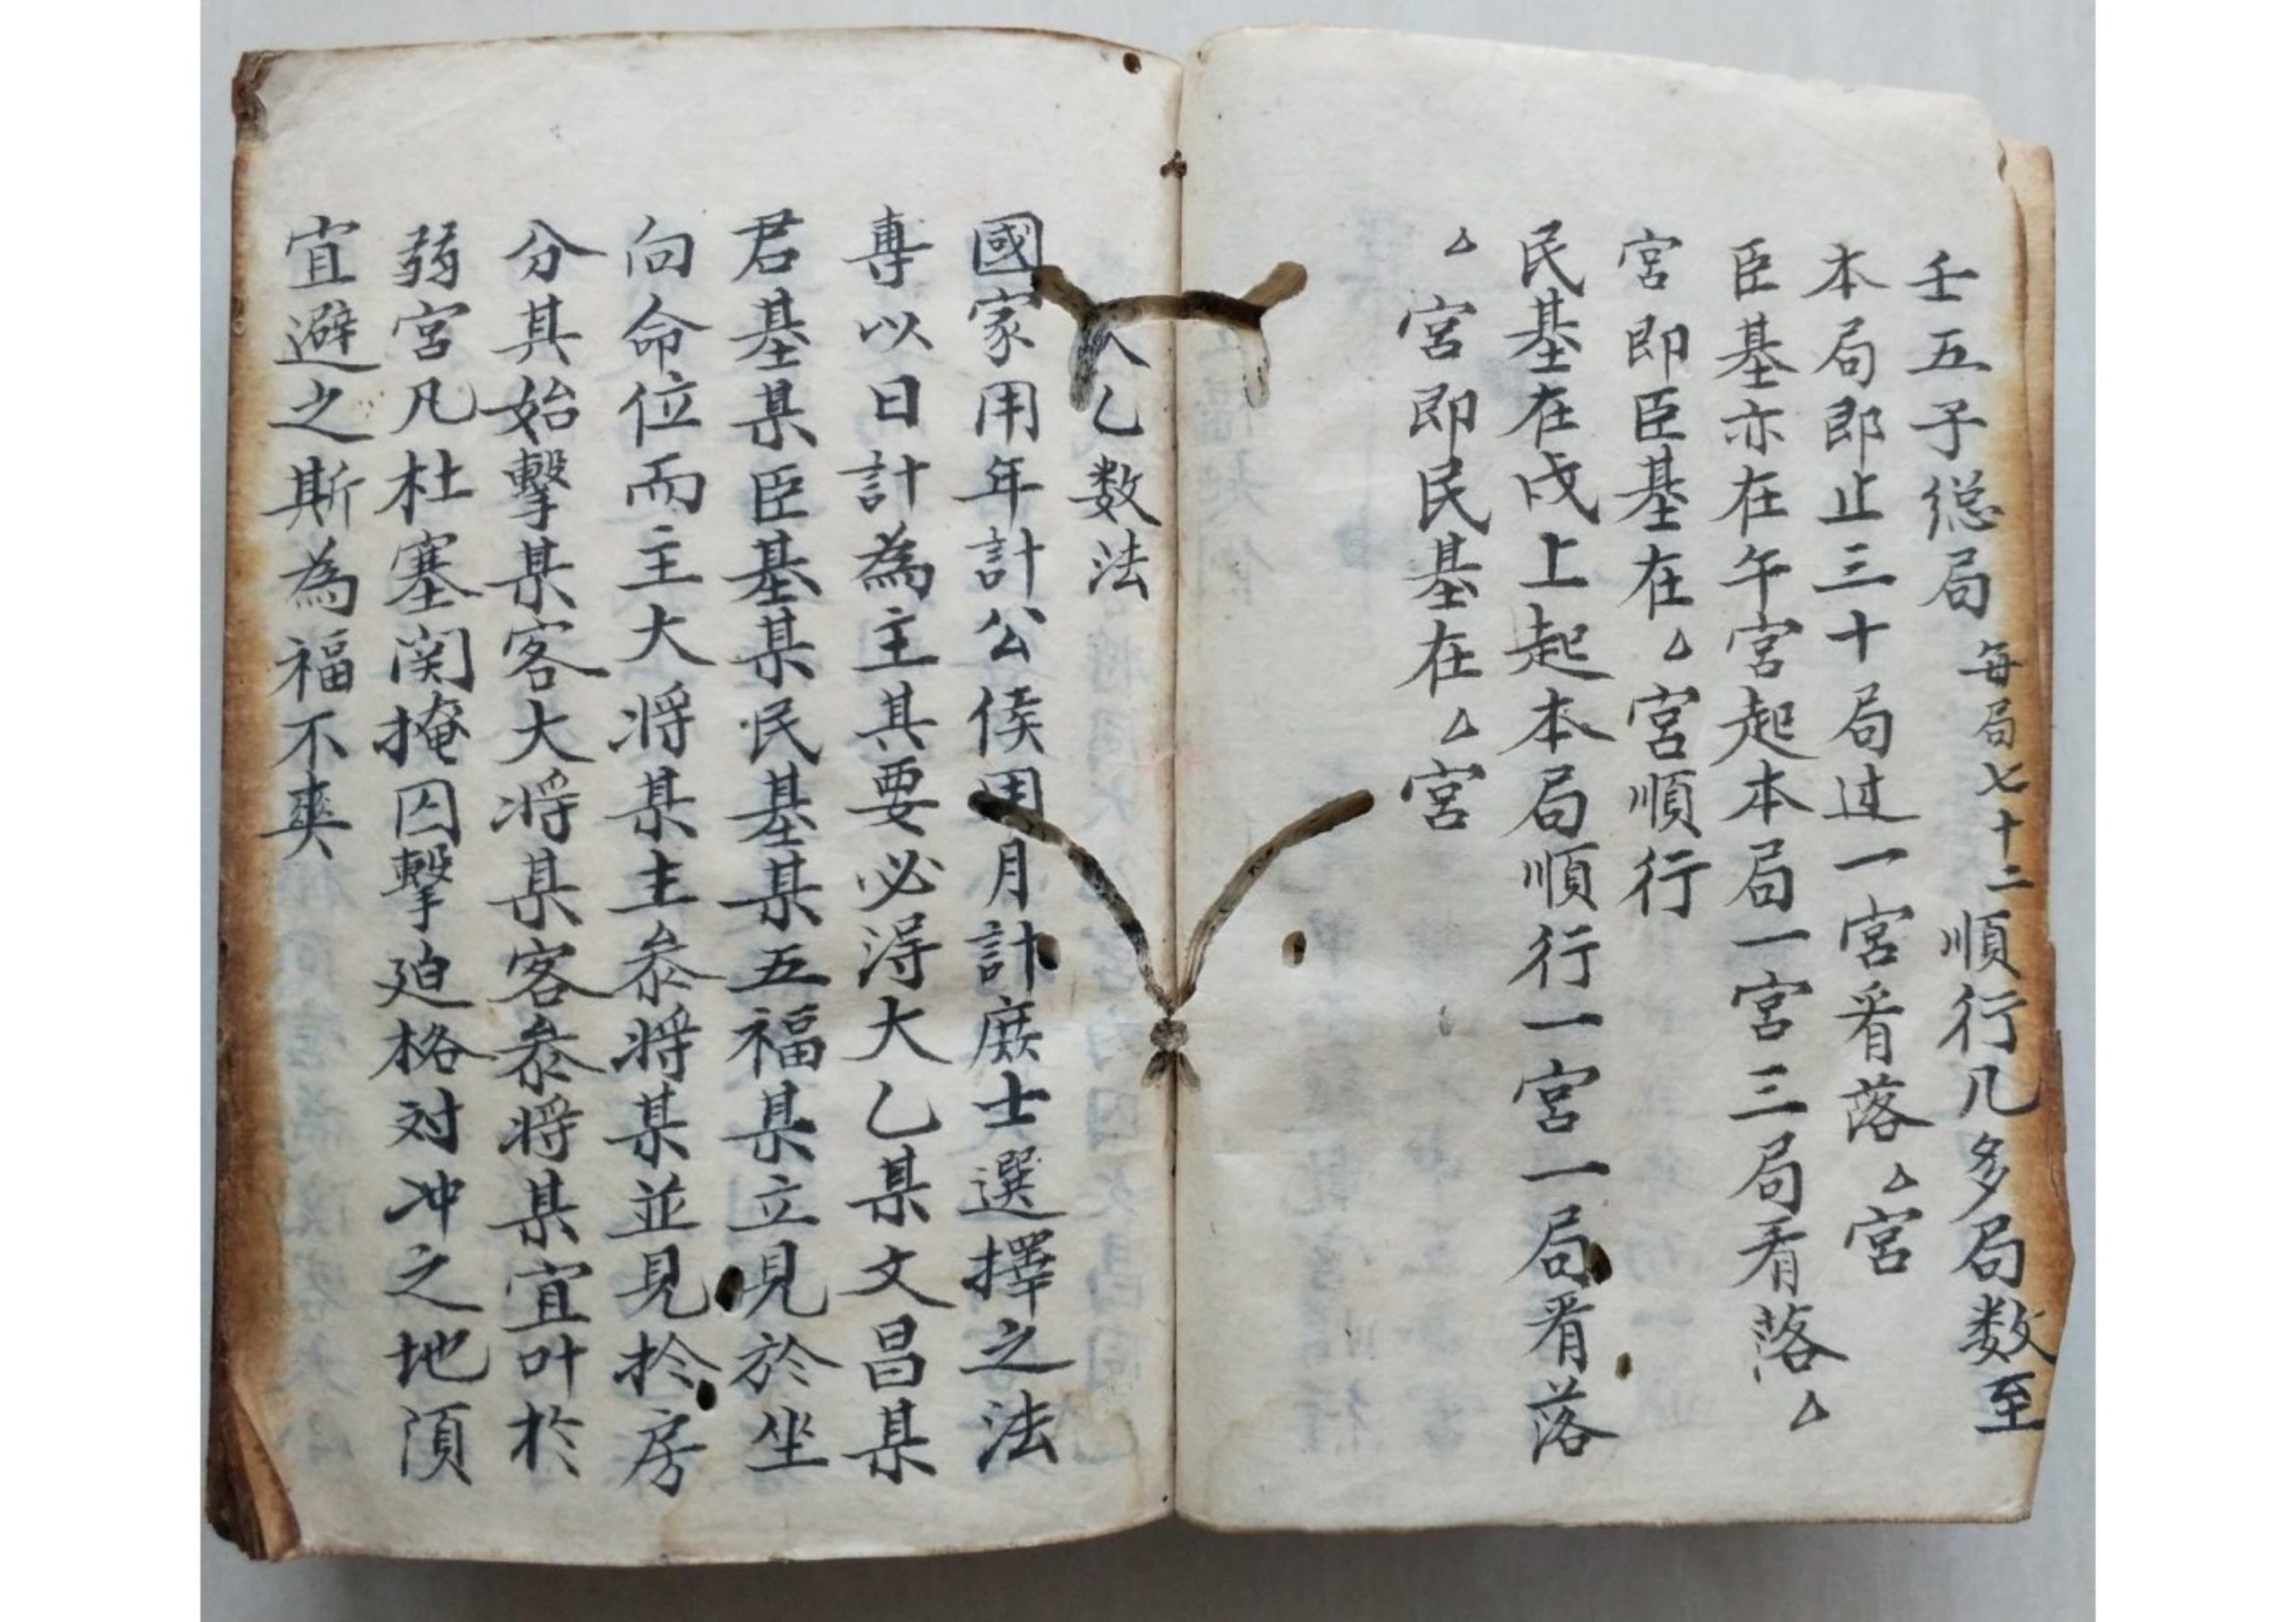 壬五子総局每局七十二順行几多局数至
本局即止三十局过一宮看落△宮
臣基亦在午宮起本局一宮三局看落△
宮即臣基在△宮順行
民基在戌上起本局順行一宮一局看落
△宮即民基在△宮
乙数法
國家用年計公侯用月計庶士選擇之法
專以日計為主其要必得大乙某文昌某
君基某臣基某民基某五福某立見於坐
向命位而主大将某主参将某並見扵房
分其始擊某客大将某客参将某宜叶扵
弱宮凡杜塞関掩囚擊廹格对冲之地湏
宜避之斯為福不爽